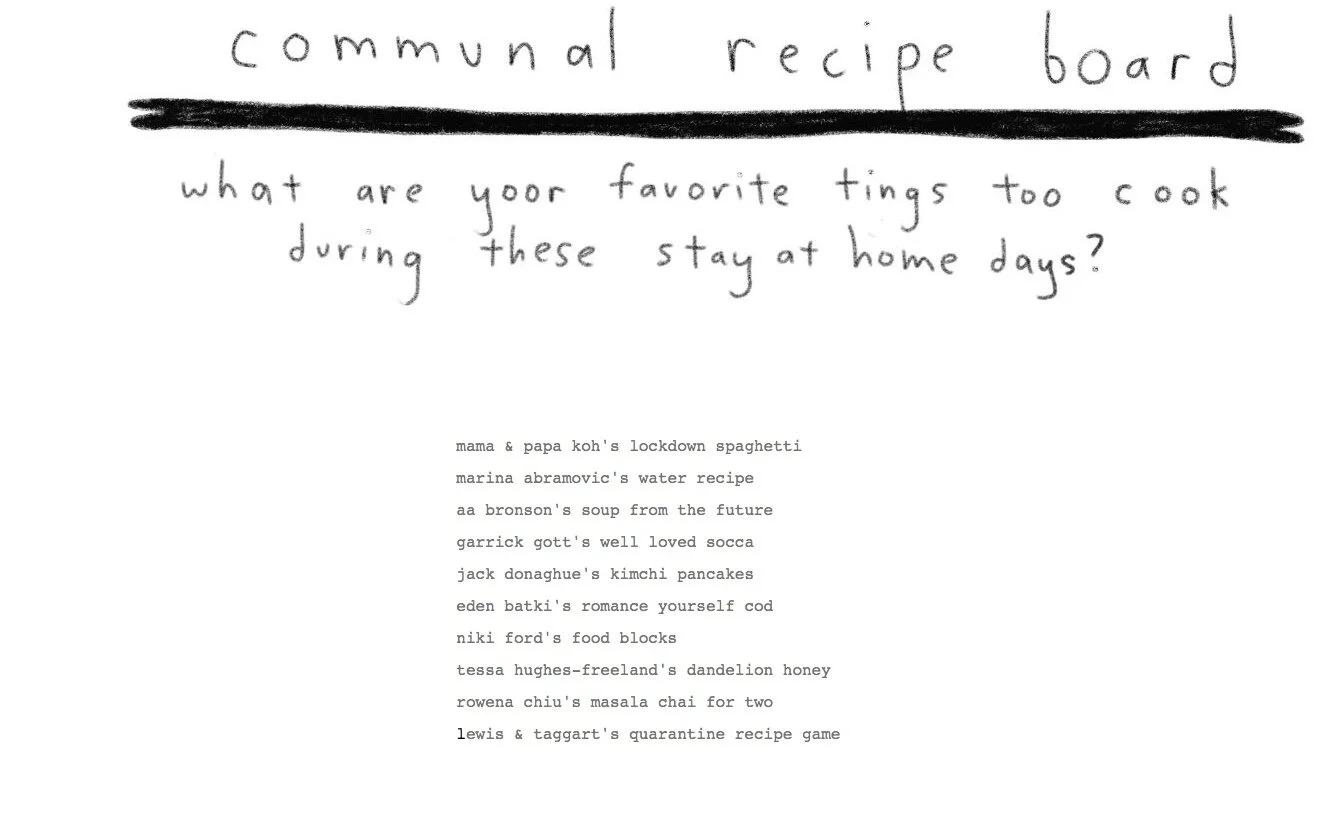 communal recipe board
what are yoor favorite tings too cook
during these stay at home days?
mama & papa koh's lockdown spaghetti
marina abramovic's water recipe
aa bronson's soup from the future
garrick gott's well loved socca
jack donaghue's kimchi pancakes
eden batki's romance yourself cod
niki ford's food blocks
tessa hughes-freeland's dandelion honey
rowena chiu's masala chai for two
lewis & taggart's quarantine recipe game